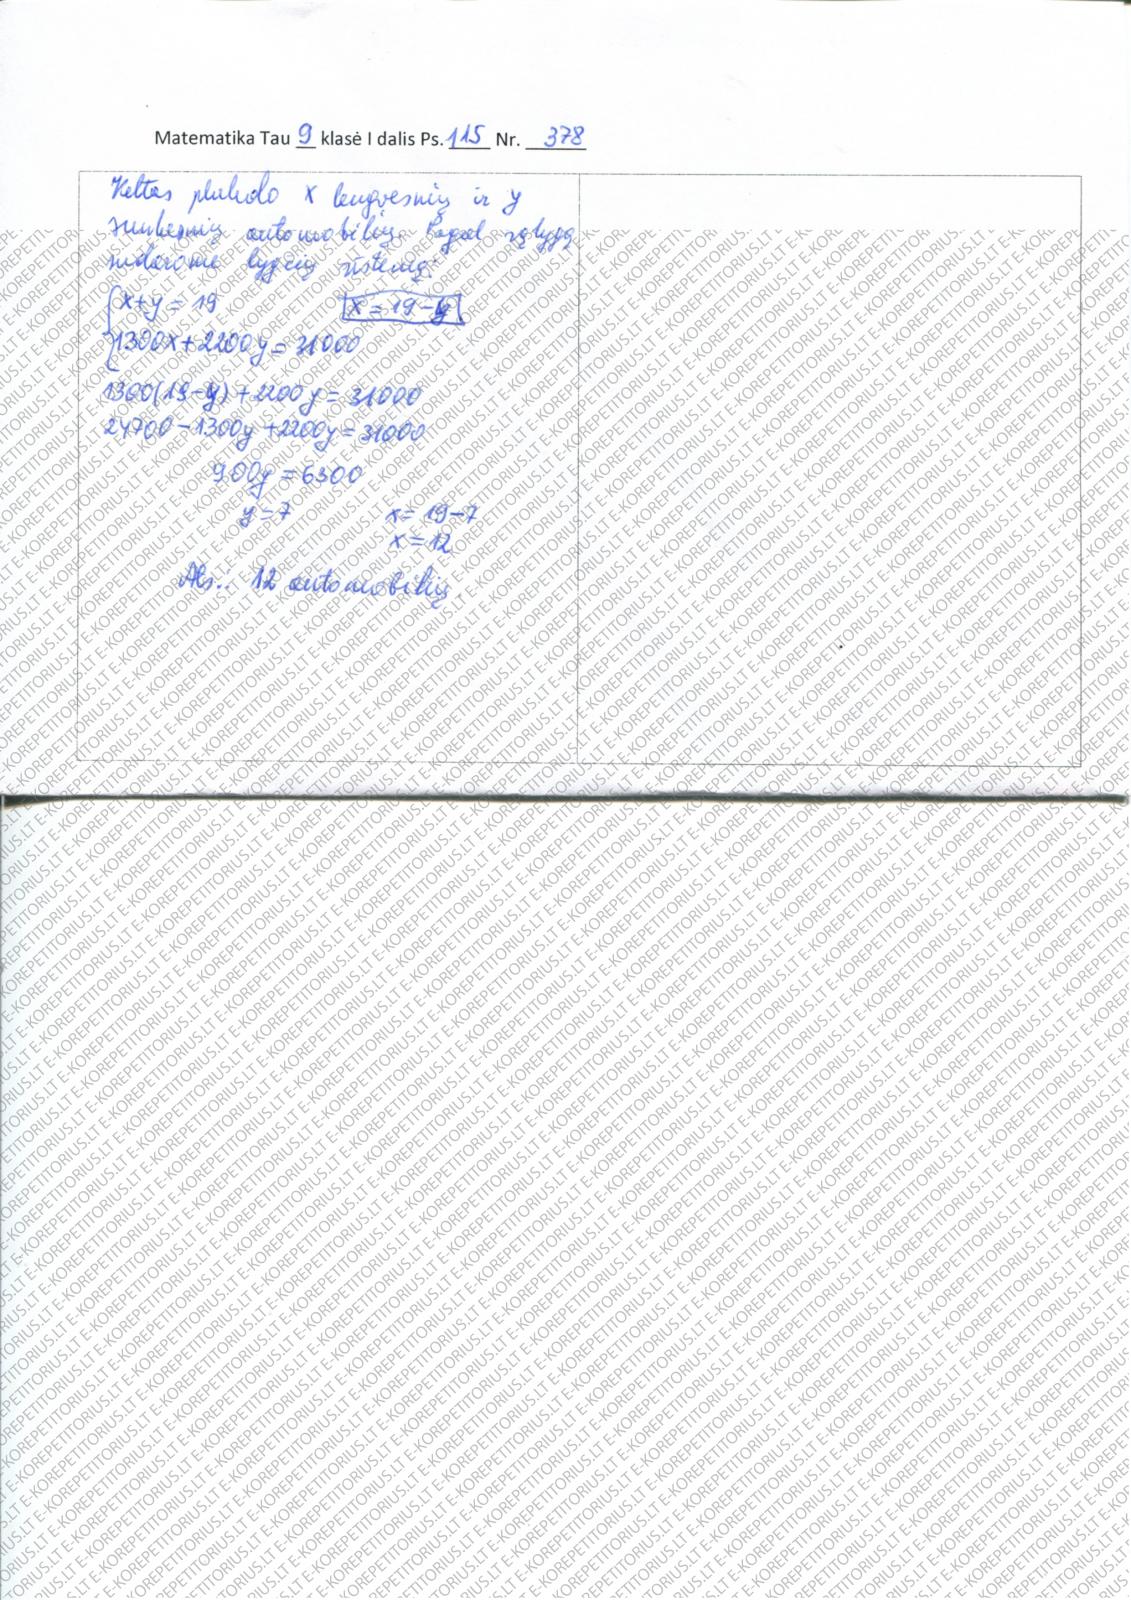 Matematika Tau 9 klasė I dalis Ps. 115 Nr. 378
Keltas plukdo x lengvesnių ir y
sunkesnių automobilių. Pagal sąlygą
sudarome lygčių sistemą:
x+y=19 x=19-y
1300x+2200y=31000
1300(19-y)+2200y=31000
24700-1300y+2200y=31000
900y=6300
y=7 x=19-7
x=12
Ats.: 12 automobilių
E-KOREPETITORIUS.LT